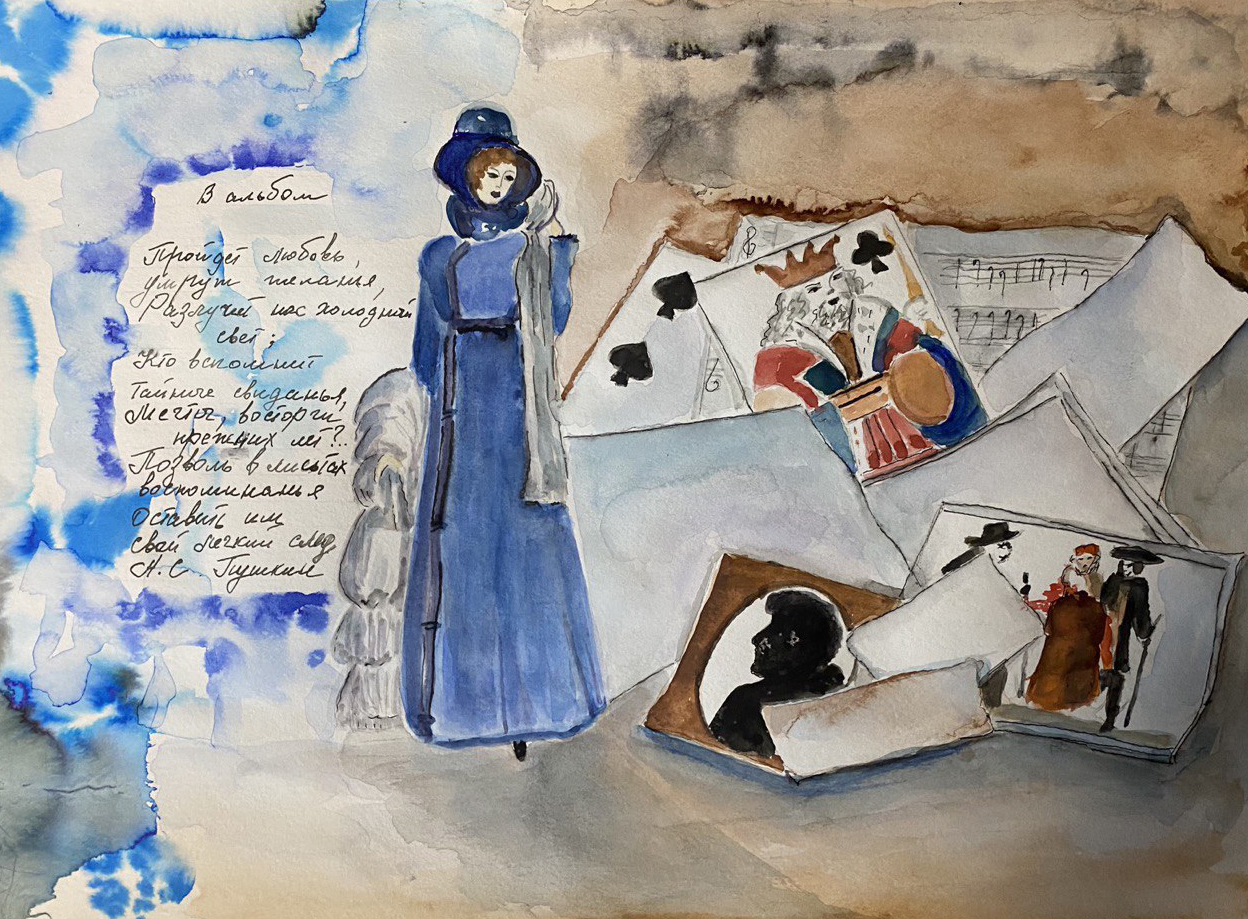 В альбом
Пройдет любовь,
умрут желанья,
Разлучит нас холодный
свет;
Кто вспомнит
тайные свиданья,
Мечты, восторги
прежних лет?..
Позволь в листах
воспоминанья
Оставить им
свой легкий след
А. С. Пушкин